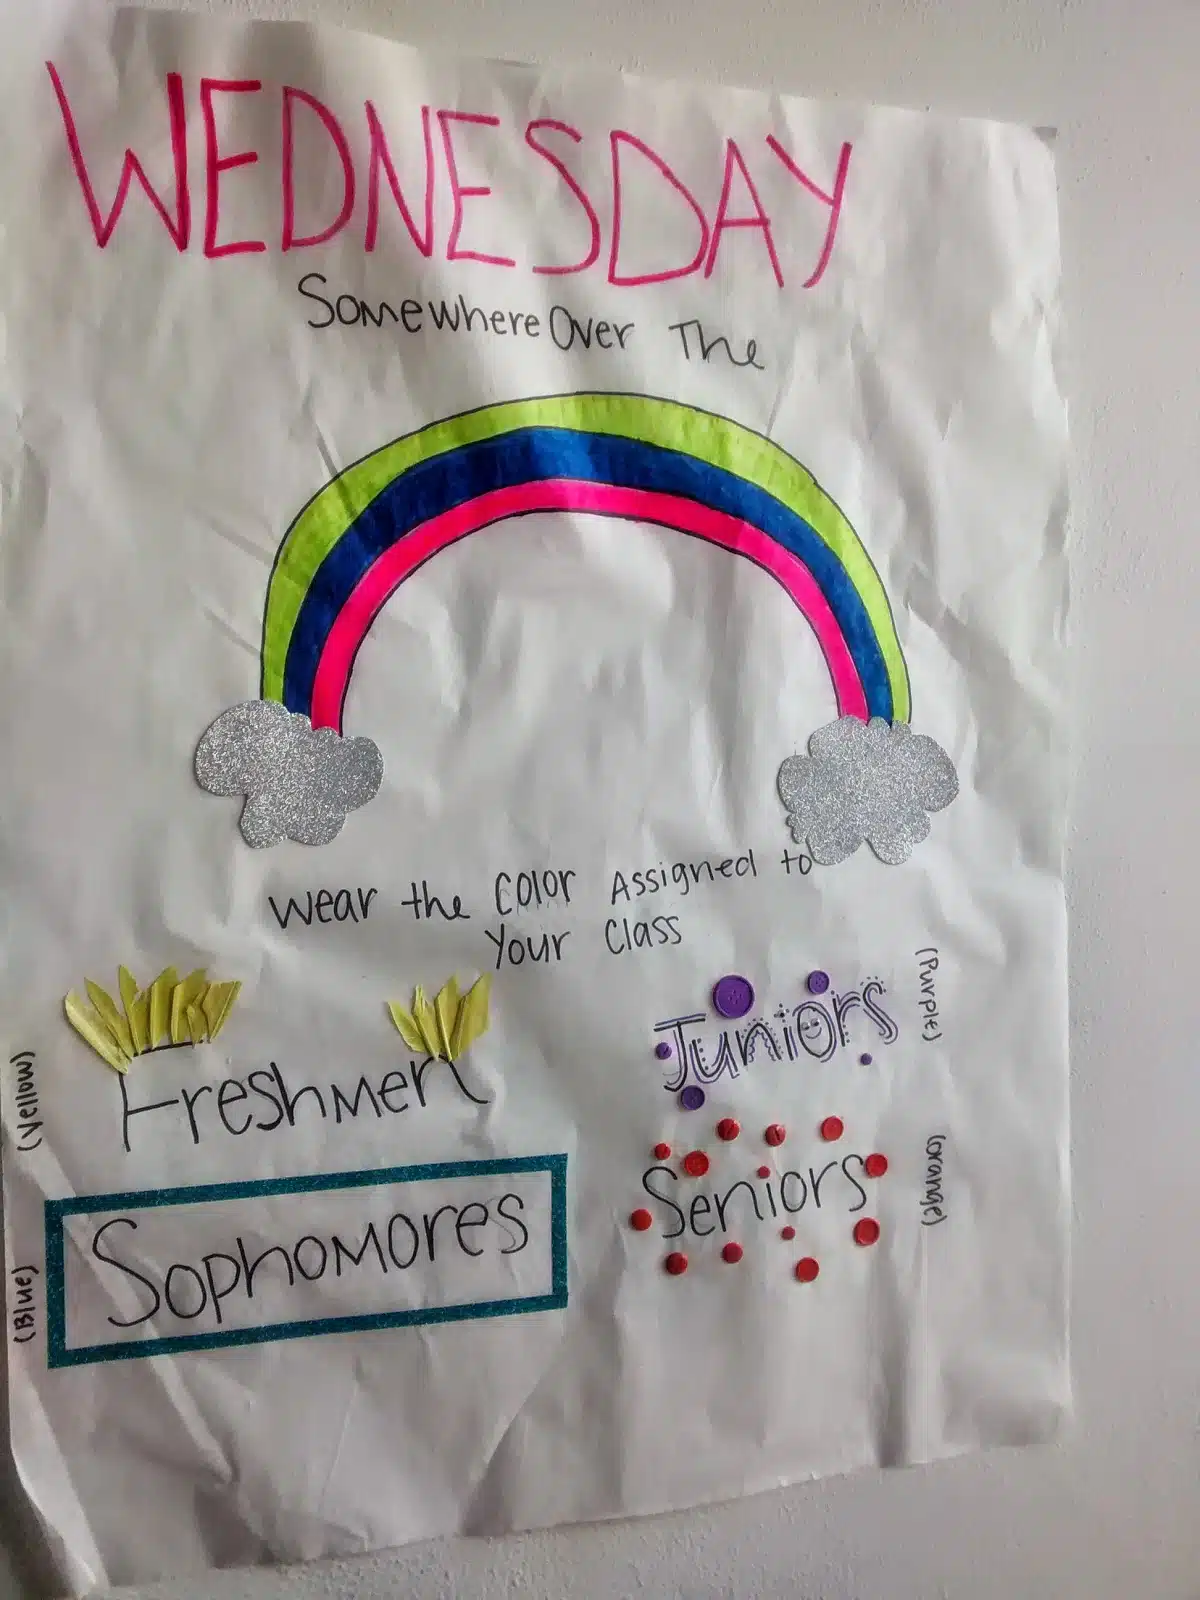 WEDNESDAY
Somewhere Over The
Wear the Color Assigned to
Your Class
(Yellow)
Freshmen
(Blue)
Sophomores
Juniors
(Purple)
Seniors
(orange)